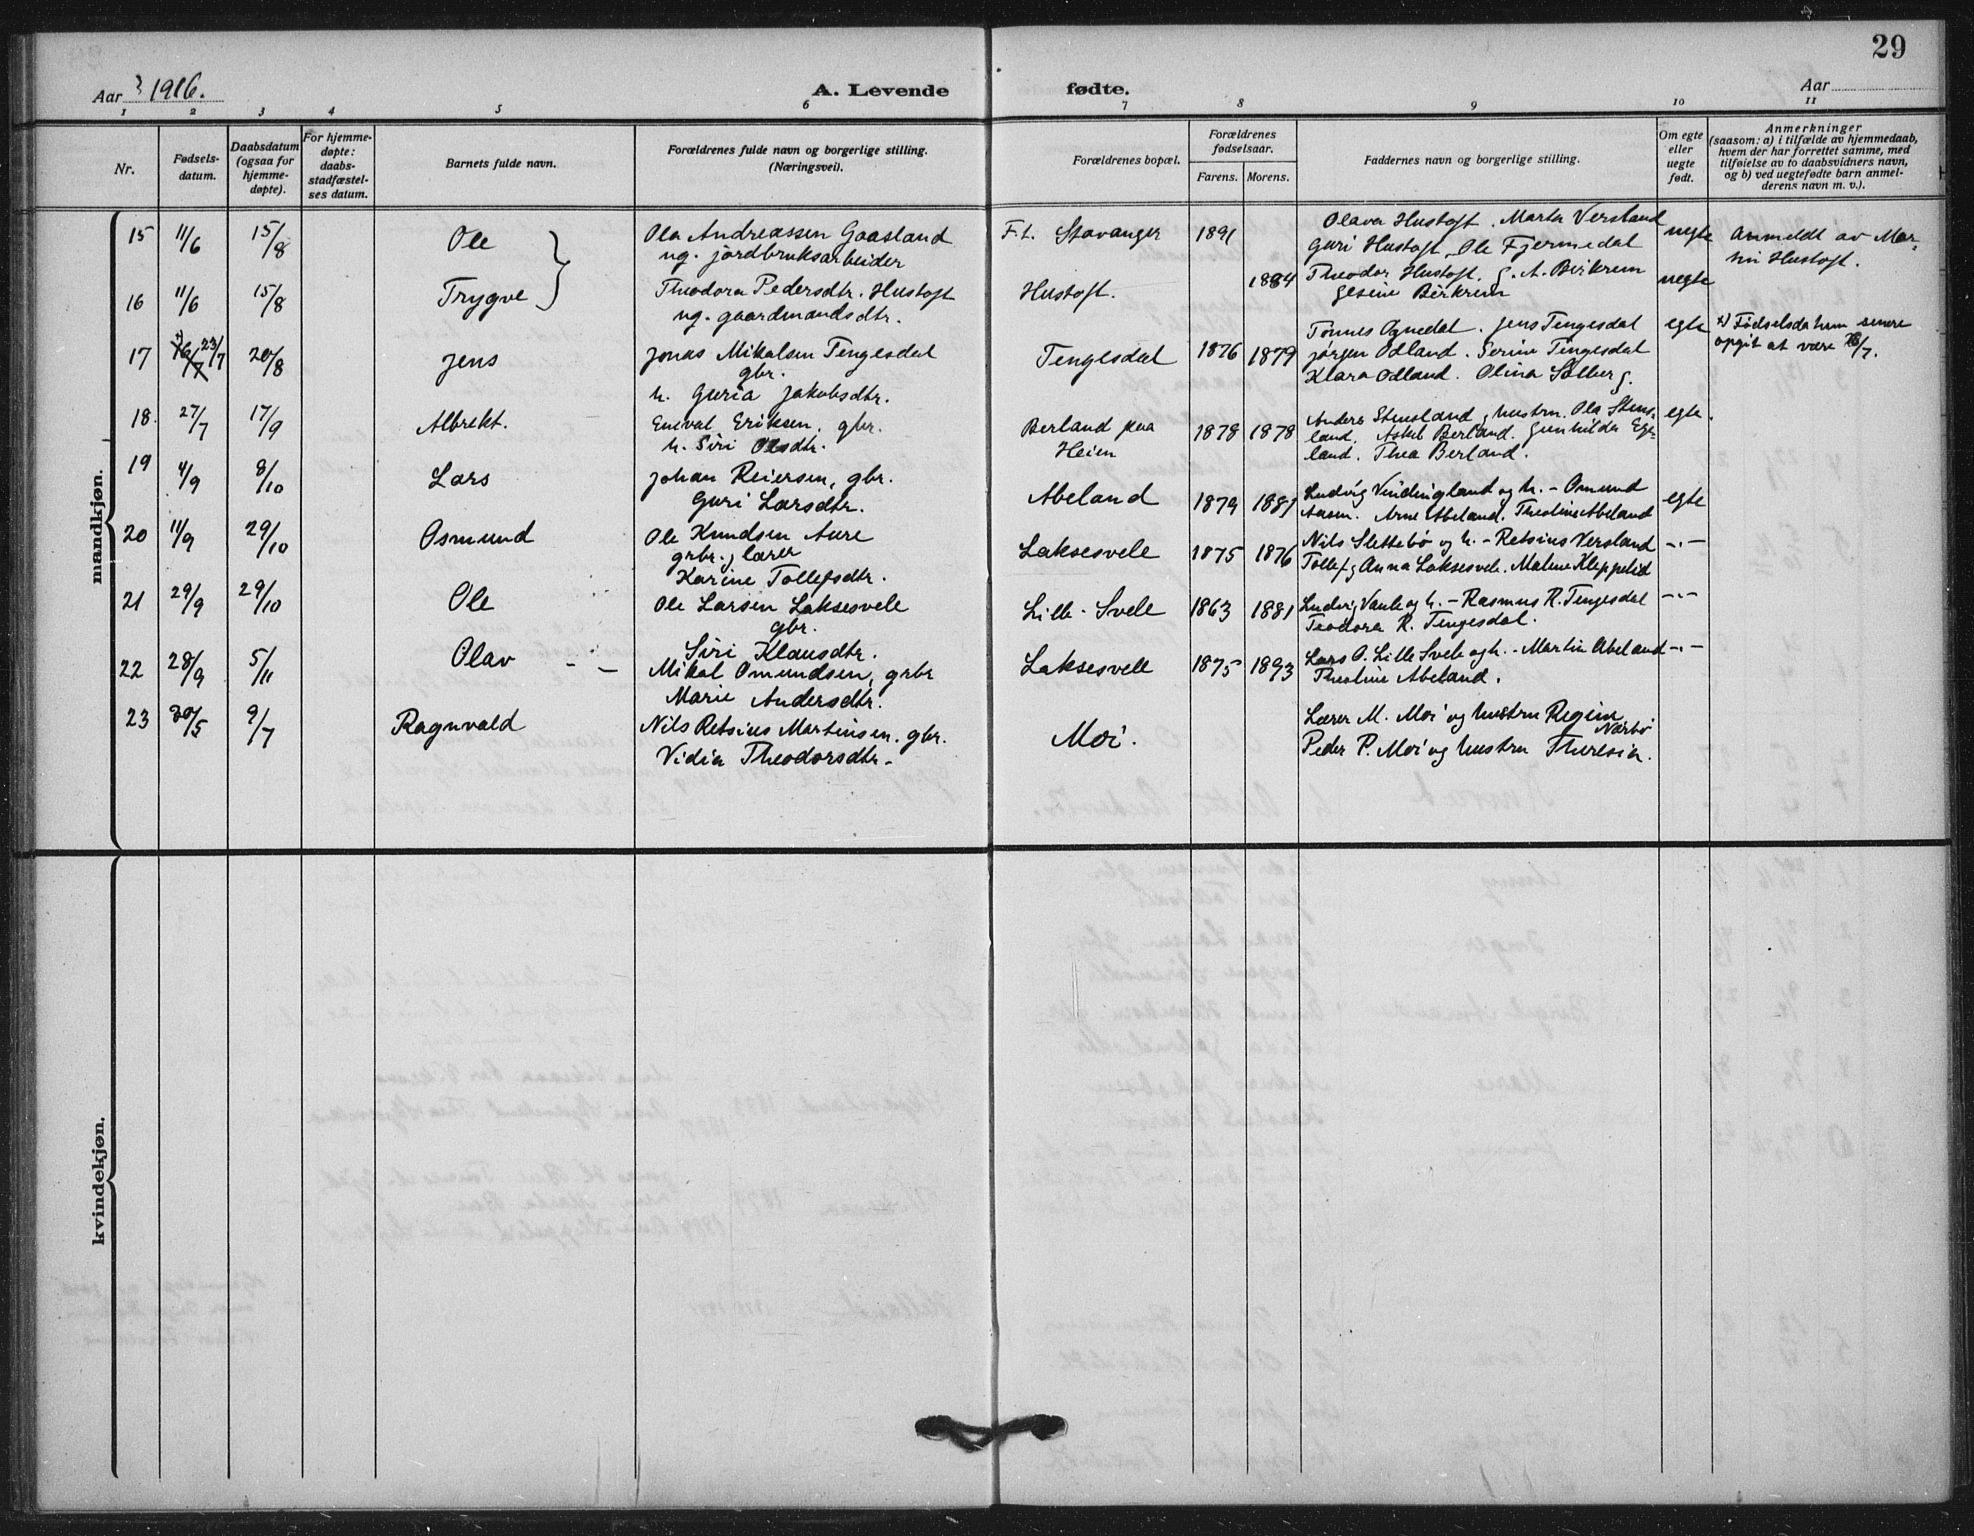 29
Aar 1916.
A. Levende fødte.
Aar
1 2 3 4 5 6 7 8 9 10 11
Nr.
Fødsels-
datum.
Daabsdatum
(ogsaa for
hjemme-
døpte).
For hjemme-
døpte:
daabs-
stadfæstel-
ses datum.
Barnets fulde navn.
Forældrenes fulde navn og borgerlige stilling.
(Næringsvei).
Forældrenes bopæl.
Forældrenes
fødselsaar.
Farens. Morens.
Faddernes navn og borgerlige stilling.
Om egte
eller
uegte
født.
Anmerkninger
(saasom: a) i tilfælde av hjemmedaab,
hvem der har forrettet samme, med
tilføielse av to daabsvidners navn,
og b) ved uegtefødte barn anmel-
derens navn m. v.).
mandkjøn.
15 11/6 15/8 Ole
Ola Andreassen Gaasland
ug. jordbruksarbeider
F.t. Stavanger 1891
Olava Hustoft. Marta Versland
Guri Hustoft, Ole Fjermedal
uegte
Anmeldt av Mar-
tin Hustoft.
16 11/6 15/8 Trygve
Theodora Pedersdtr. Hustoft
ug. gaardmandsdtr.
Hustoft. 1884
Theodor Hustoft. G. A. Birkrem
Gesine Birkrem
uegte
17 23/7 20/8 Jens
Jonas Mikalsen Tengesdal
gbr.
h. Guria Jakobsdtr.
Tengesdal 1876 1879
Tønnes Ognedal. Jens Tengesdal
Jørgen Odland. Serine Tengesdal
Klara Odland. Olina Solberg.
egte
x) Fødselsdatum senere
opgit at være 16/7.
18. 27/7 17/9 Albrekt.
Eneval Eriksen, gbr.
h. Siri Olsdtr.
Berland paa
Heien
1878 1878
Anders Stensland og hustru. Ola Stens-
land. Askel Berland. Gunhilda Ege-
land. Thea Berland.
egte.
19 4/9 8/10 Lars
Johan Reiersen, gbr.
Guri Larsdtr.
Abeland 1879 1881
Ludvig Vindingland og h. - Omund
Aasen. Arne Abeland. Theoline Abeland
egte
20 11/9 29/10 Osmund
Ole Knudsen Aure
grbr. g lærer
Karine Tollefsdtr.
Laksesvele 1875 1876
Nils Slettebø og h. - Retsius Versland
Tollef g Anna Laksesvele. Malene Kleppelid
-"-
21 29/9 29/10 Ole
Ole Larsen Laksesvele
gbr.
Siri Klausdtr.
Lille-Svele 1863 1881
Ludvig Vaule og h. - Rasmus R. Tengesdal
Teodora R. Tengesdal.
-"-
22 28/9 5/11 Olav
Mikal Omundsen, grbr
Marie Andersdtr.
Laksesvele 1875 1893
Lars O. Lille Svele og h. - Martin Abeland
Theoline Abeland.
-"-
23 30/5 9/7 Ragnvald
Nils Retsius Martinsen. gbr.
Vidia Theodorsdtr.
Moi.
Lærer M. Moi og hustru Regine
Nærbø.
Peder P. Moi og hustru Theresia.
kvindekjøn.